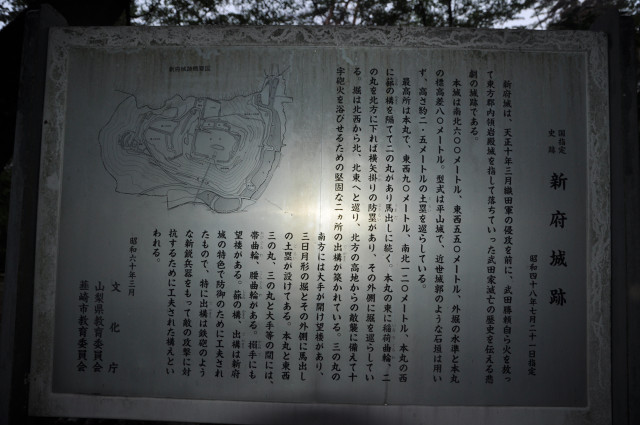 国指定
史跡
新府城跡
昭和四十八年七月二十一日指定
新府城は、天正十年三月織田軍の侵攻を前に、武田勝頼自ら火を放っ
て東方郡内領岩殿城を指して落ちていった武田家滅亡の歴史を伝える悲
劇の城跡である。
本城は南北六〇〇メートル、東西五五〇メートル、外堀の水準と本丸
の標高差八〇メートル。型式は平山城で、近世城郭のような石垣は用い
ず、高さ約二・五メートルの土塁を巡らしている。
最高所は本丸で、東西九〇メートル、南北一二〇メートル、本丸の西
に蔀の構を隔てて二の丸があり馬出しに続く。本丸の東に稲荷曲輪、二
の丸を北方に下れば横矢掛りの防塁があり、その外側に堀を巡らしてい
る。堀は北西から北、北東へと巡り、北方の高地からの敵襲に備えて十
字砲火を浴びせるための堅固な二ヵ所の出構が築かれている。三の丸の
南方には大手が開け望楼があり、
三日月形の堀とその外側に馬出し
の土塁が設けてある。本丸と東西
三の丸、三の丸と大手等の間には、
帯曲輪、腰曲輪がある。搦手にも
望楼がある。蔀の構、出構は新府
城の特色で防御のために工夫され
たもので、特に出構は鉄砲のよう
な新鋭兵器をもって敵の攻撃に対
抗するために工夫された構えとい
われる。
昭和六十年三月
文化庁
山梨県教育委員会
韮崎市教育委員会